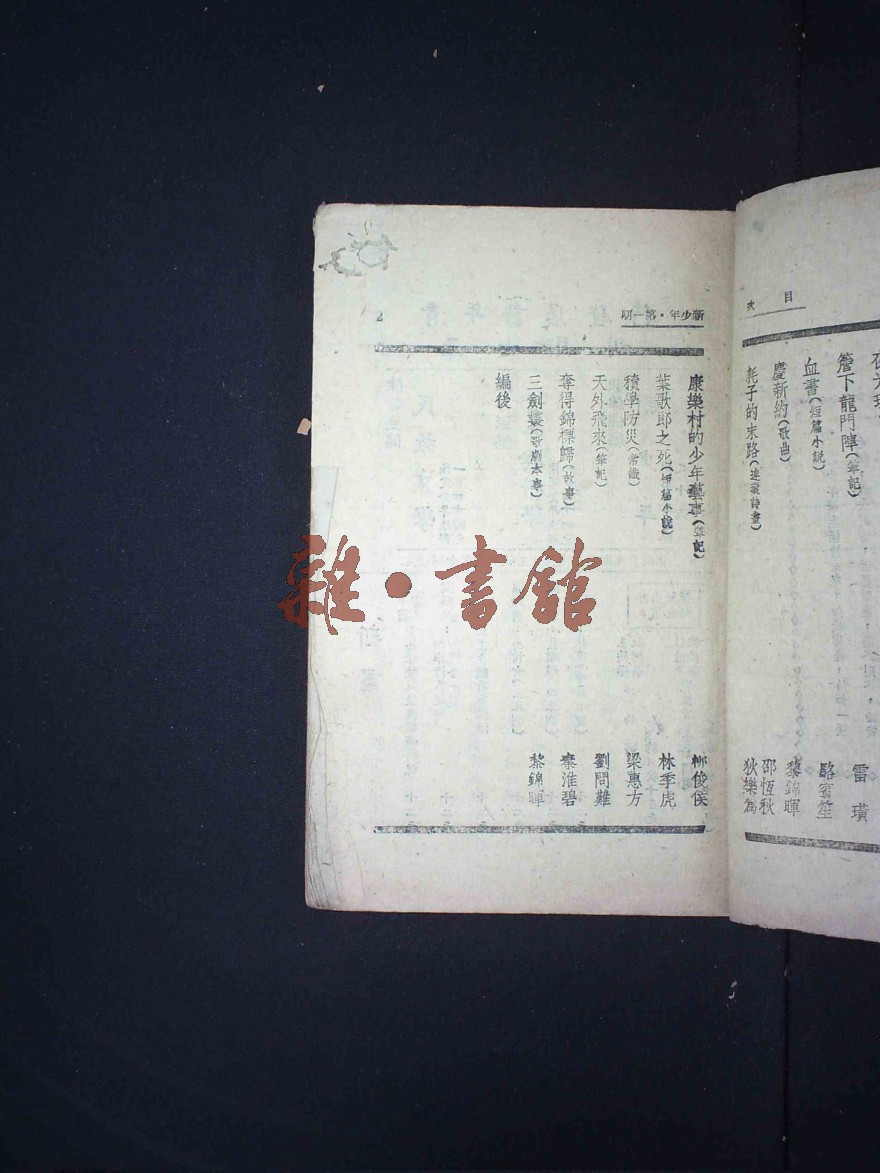 目次
簷下龍門陣(筆記) 雷璜
血書(短篇小說) 駱賓笙
慶新約(歌曲) 黎錦暉
耗子的末路(連環詩畫) 邵恆秋 狄樂為
新少年·第一期
2
康樂村的少年藝事(筆記) 柳俊俟
葉歌郎之死(短篇小說) 林季虎
積學防災(常識) 梁惠方
天外飛來(筆記) 劉問難
奪得錦標歸(故事) 秦淮碧
三劍婁(歌劇本事) 黎錦暉
編後
雜·書館